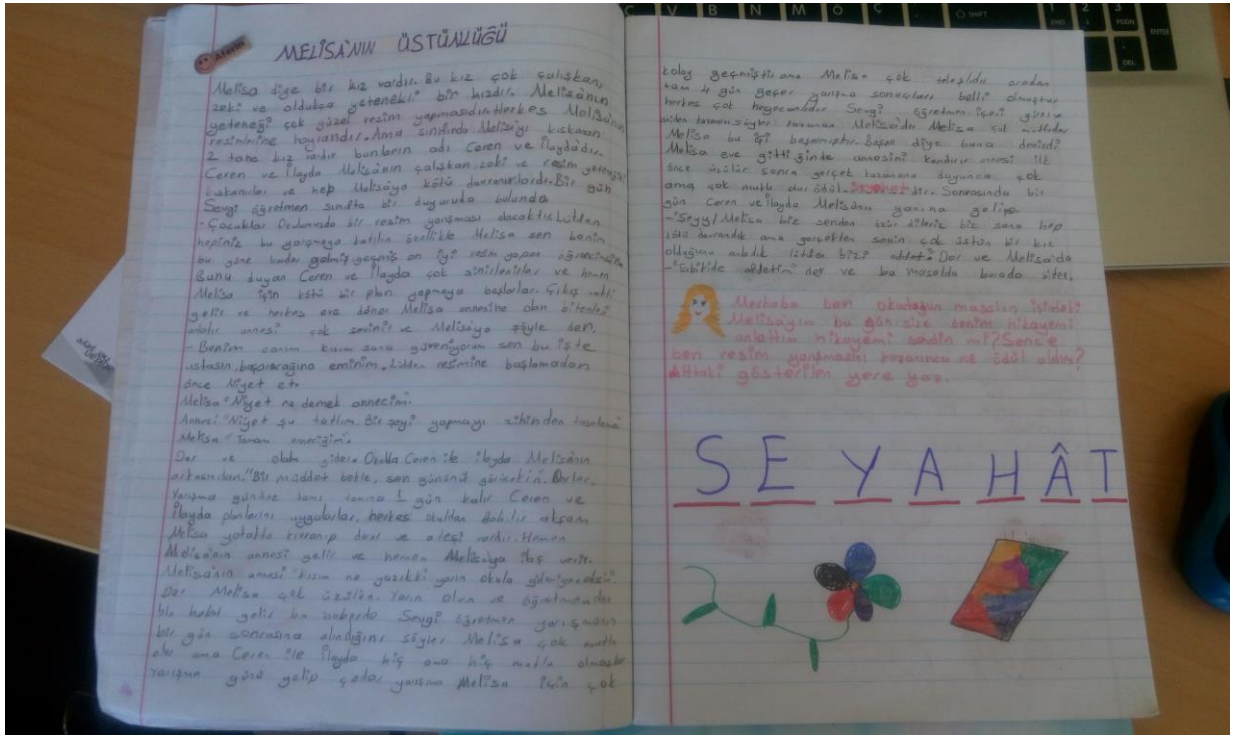 Aferin
MELİSA'NIN ÜSTÜNLÜĞÜ
Melisa diye bir kız vardır. Bu kız çok çalışkan,
zeki ve oldukça yetenekli bir kızdır. Melisa'nın
yeteneği çok güzel resim yapmasıdır. Herkes Melisa'nın
resimlerine hayrandır. Ama sınıfında Melisa'yı kıskanan
2 tane kız vardır bunların adı Ceren ve İlayda'dır.
Ceren ve İlayda Melisa'nın çalışkan, zeki ve resim yeteneğini
kıskanırlar ve hep Melisa'ya kötü davranırlardı. Bir gün
Sevgi öğretmen sınıfta bir duyuruda bulundu
- Çocuklar Okulumuzda bir resim yarışması olacaktır. Lütfen
hepiniz bu yarışmaya katılın özellikle Melisa sen benim
bu güne kadar gelmiş geçmiş en iyi resim yapan öğrencimsin
Bunu duyan Ceren ve İlayda çok sinirlenirler ve hemen
Melisa için kötü bir plan yapmaya başlarlar. Çıkış vakti
gelir ve herkes eve döner Melisa annesine olan bitenleri
anlatır annesi çok sevinir ve Melisa'ya şöyle der.
- Benim canım kızım sana güveniyorum sen bu işte
ustasın, başaracağına eminim. Lütfen resimine başlamadan
önce Niyet et.
Melisa "Niyet ne demek annecim.
Annesi "Niyet şu tatlım. Bir şeyi yapmayı zihinden tasarlama
Melisa "Tamam anneciğim".
Der ve okula gider. Okulda Ceren ile İlayda Melisa'nın
arkasından. "Bir müddet bekle, sen gününü göreceksin". Derler.
Yarışma gününe tamı, tamına 1 gün kalır. Ceren ve
İlayda planlarını uygularlar, herkes okuldan dağılır akşam
Melisa yatakta kıvranıp durur ve ateşi vardır. Hemen
Melisa'nın annesi gelir ve hemen Melisa'ya ilaç verir.
Melisa'nın annesi "kızım ne yazıkki yarın okula gidemiyeceksin".
Der Melisa çok üzülür. Yarın olur ve öğretmenden
bir haber gelir bu haberde Sevgi öğretmen yarışmanın
bir gün sonrasına alındığını söyler Melisa çok mutlu
olur ama Ceren ile İlayda hiç ama hiç mutlu olmazlar
Yarışma günü gelip çatar yarışma Melisa için çok
kolay geçmiştir ama Melisa çok telaşlıdır aradan
tam 4 gün geçer yarışma sonuçları belli olmuştur
herkes çok heyecanlıdır. Sevgi öğretmen içeri girer
kazananı söyler kazanan Melisa'dır Melisa çok mutludur
Melisa bu işi başarmıştır. Başarı diye buna denirdi
Melisa eve gittiğinde annesini kandırır annesi ilk
önce üzülür sonra gerçek kazananı duyunca çok
ama çok mutlu olur ödül. Seyahattir. Sonrasında bir
gün Ceren ve İlayda Melisa'nın yanına gelip.
- "Şeyy! Melisa biz senden özür dileriz biz sana hep
kötü davrandık ama gerçekten senin çok üstün bir kız
olduğunu anladık lütfen bizi affet". Der ve Melisa'da
- "Tabikide affettim" der ve bu masalda burada biter.
Merhaba ben okuduğun masalın içindeki
Melisa'yım bu gün size benim hikayemi
anlattım hikayemi sevdin mi? Sence
ben resim yarışmasını kazanınca ne ödül aldım?
Alttaki gösterilen yere yaz...
SEYAHÂT